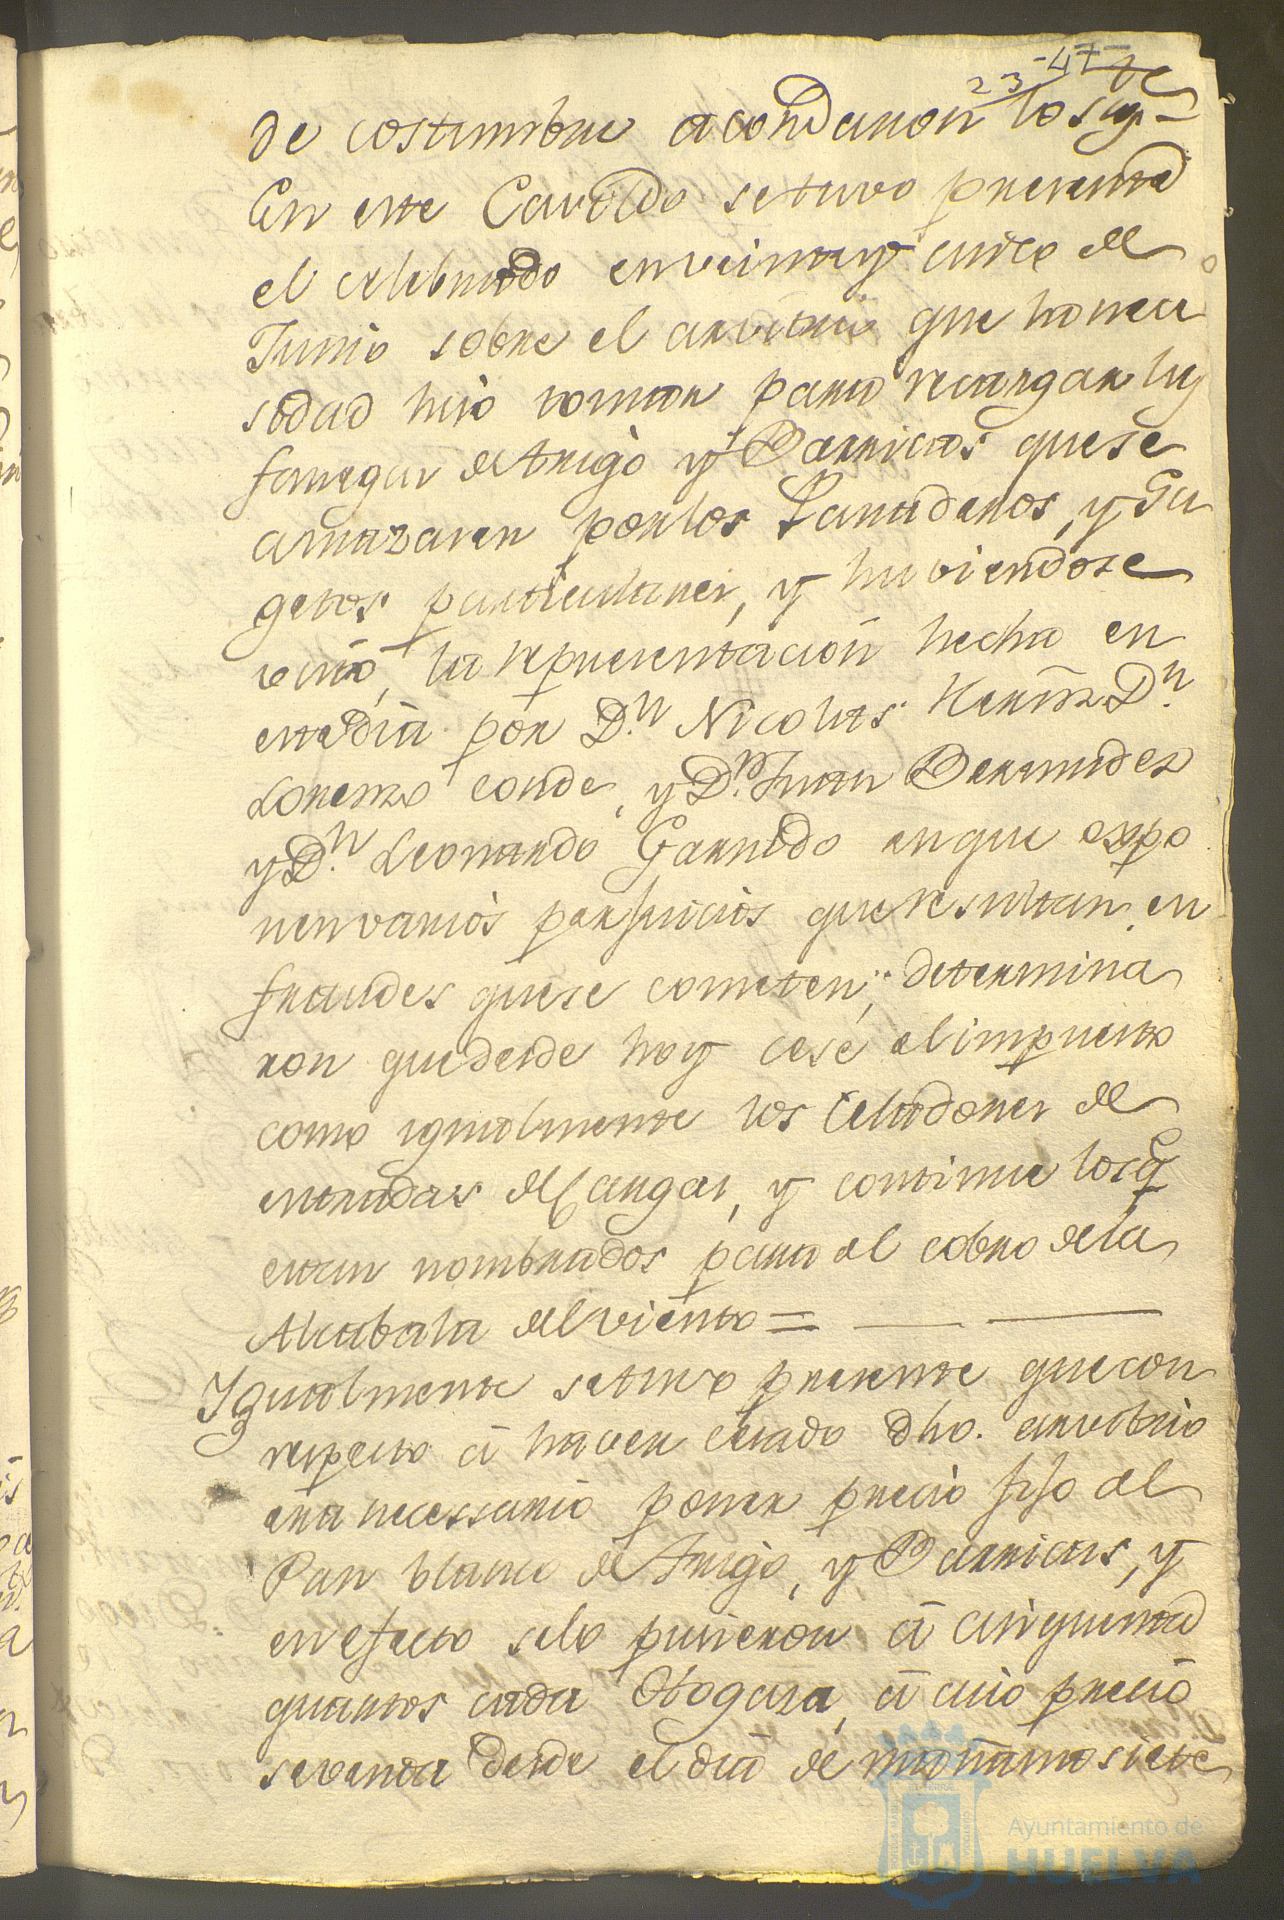 23 - 47
de costumbre acordaron lo sigte
En este Cavildo se tuvo presente
el celebrado en veinte y cinco de
Junio sobre el arvitrio que la nece
sidad hizo tomar para recargar las
fanegas de trigo y Barricas que se
amazaren por los Panaderos, y Su
getos particulares, y haviendose
visto, la representacion hecha en
este dia por Dn Nicolas Hernz. Dn
Lorenzo Conde, y Dn Juan Bermudez
y Dn Leonardo Garrido en que expo
nen varios perjuicios que resultan en
fraudes que se cometen; determina
ron que desde hoy cese el impuesto
como igualmente los Celadores de
entradas de Cargas, y continue los q
estan nombrados para el cobro de la
Alcabala del viento =
Igualmente se tuvo presente que con
respecto á haver cesado dho. arvitrio
era necessario poner precio fijo al
Pan blanco de trigo, y Barricas, y
en efecto selo pusieron á cinquenta
quartos cada Obogaza, á cuio precio
se venda desde el dia de mañana siete
Ayuntamiento de
HUELVA